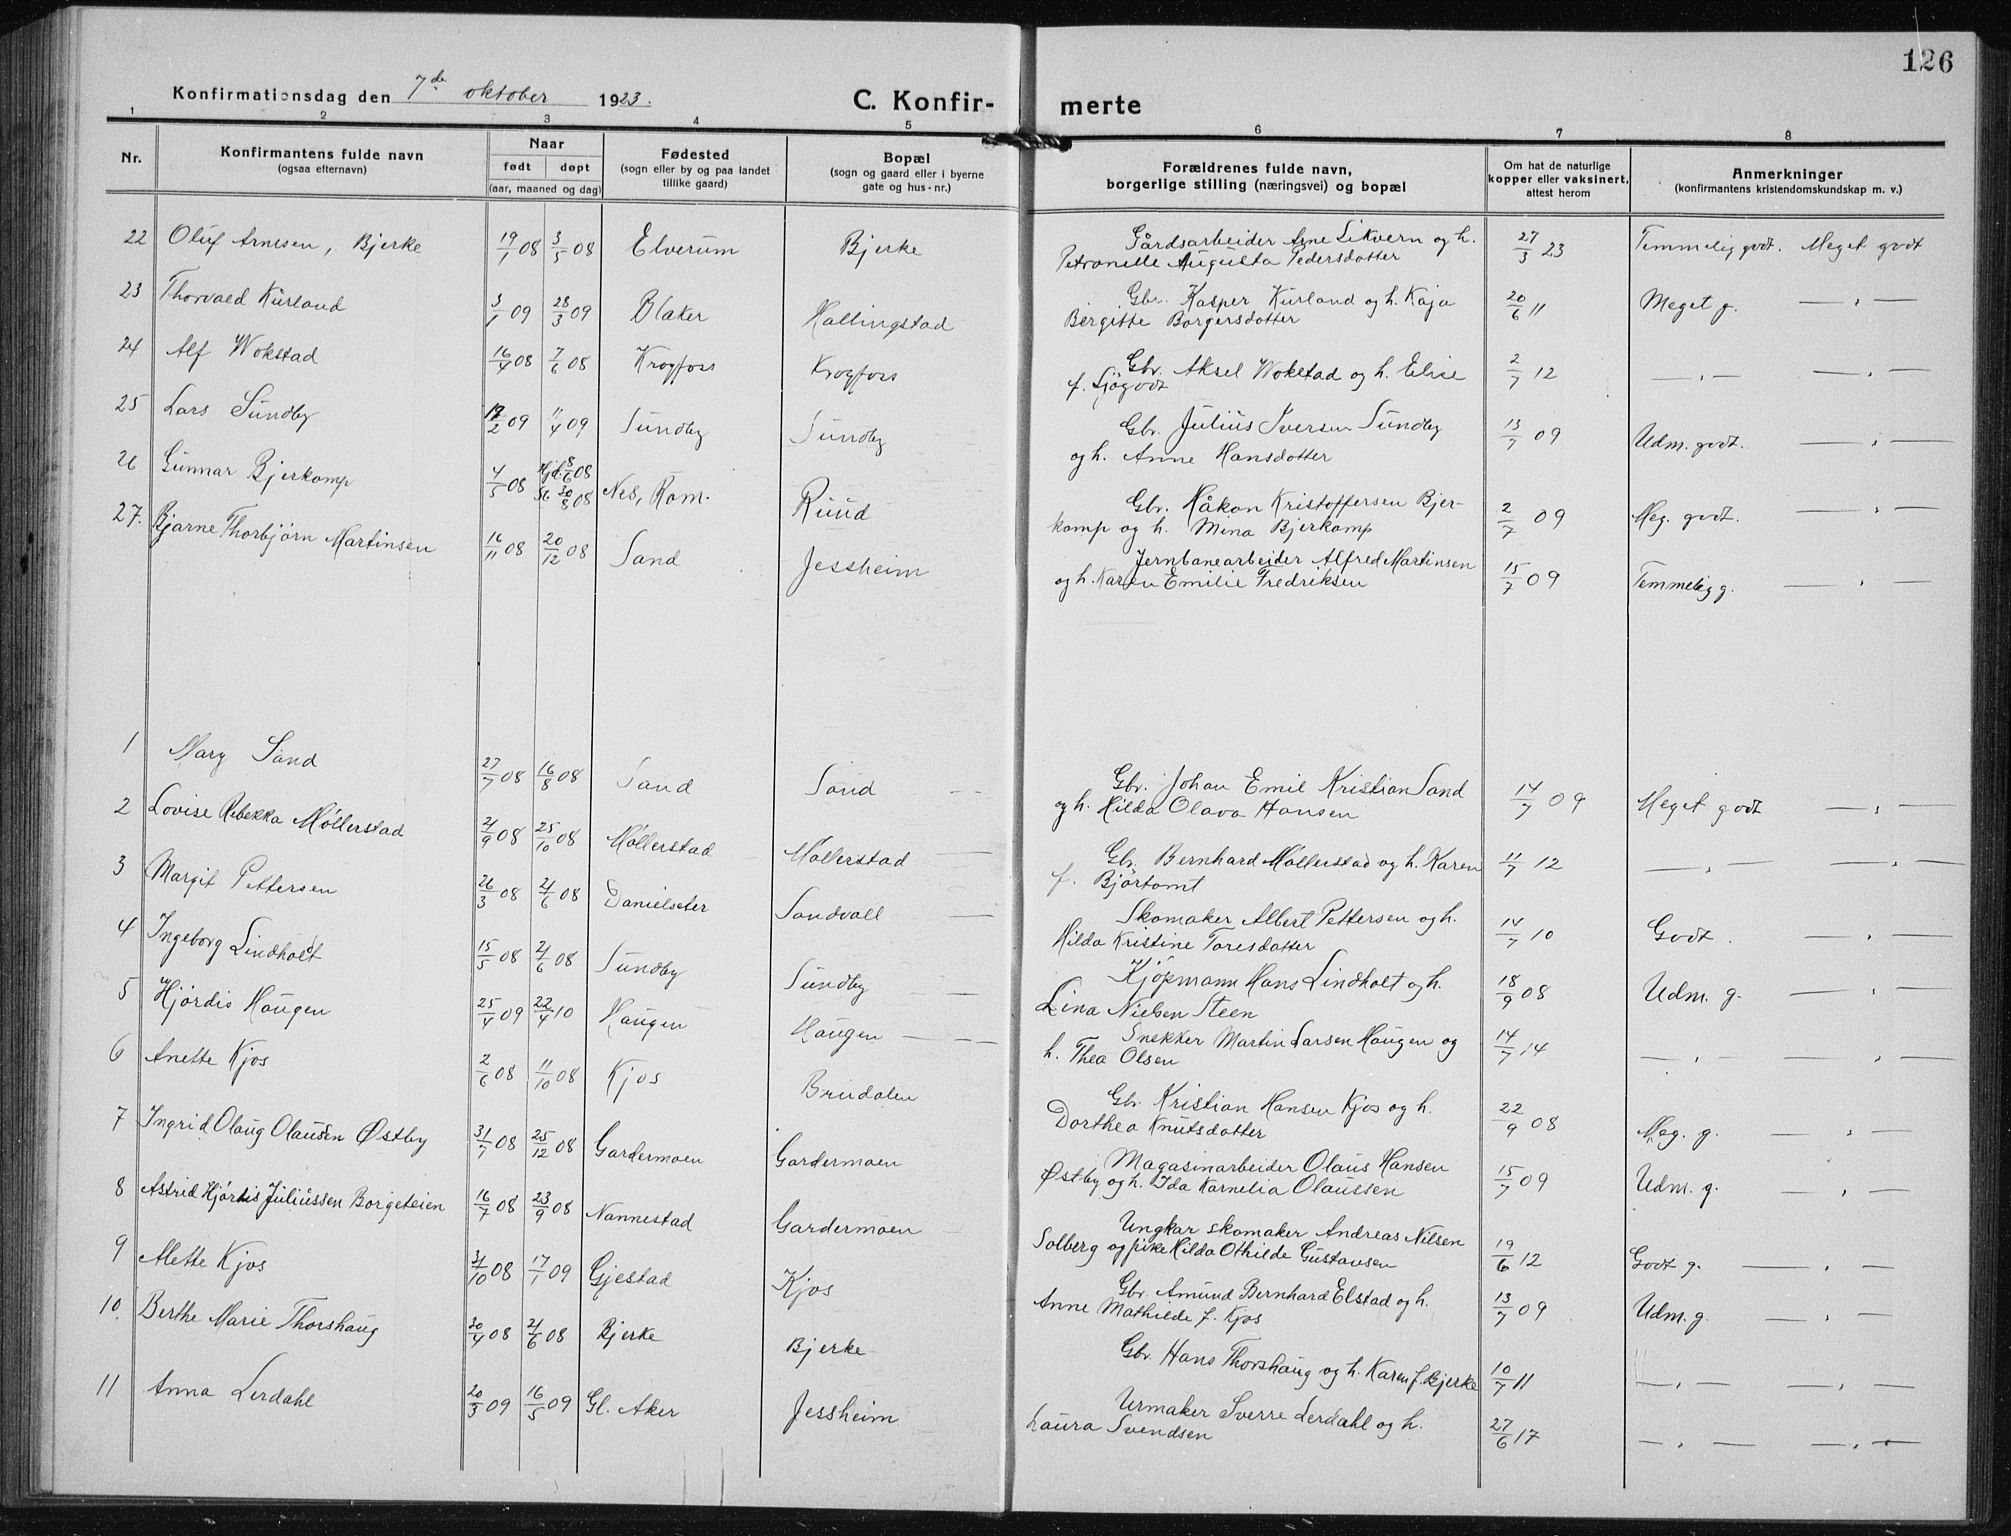 126
Konfirmationsdag den 7de oktober 1923.
C. Konfir- merte
1 2 3 4 5 6 7 8
Nr.
Konfirmantens fulde navn
(ogsaa efternavn)
Naar
født døpt
(aar, maaned og dag)
Fødested
(sogn eller by og paa landet
tillike gaard)
Bopæl
(sogn og gaard eller i byerne
gate og hus-nr.)
Forældrenes fulde navn,
borgerlige stilling (næringsvei) og bopæl
Om hat de naturlige
kopper eller vaksinert,
attest herom
Anmerkninger
(konfirmantens kristendomskundskap m. v.)
22 Oluf Arnesen, Bjerke 19/1 08 3/5 08 Elverum Bjerke Gårdsarbeider Arne Sikvern og h. 27/3 23 Temmelig godt. Meget godt
Petronelle Augusta Pedersdotter
23 Thorvald Kurland 3/1 09 28/3 09 Blaker Hallingstad Gbr. Kasper Kurland og h. Kaja 20/6 11 Meget g. — " —
Bergitte Borgersdotter
24 Alf Wokstad 16/4 08 7/6 08 Krogfoss Krogfoss Gbr. Aksel Wokstad og h. Elise 2/7 12 — " — — " —
f. Sjøgodt
25 Lars Sundby 12/2 09 11/4 09 Sundby Sundby Gbr. Julius Iversen Sundby 13/7 09 Udm. godt. — " —
og h. Anne Hansdotter
26 Gunnar Bjerkamp 4/5 08 Hjd. 8/6 08 St. 30/8 08 Nes, Rom. Ruud Gbr. Håkon Kristoffersen Bjer- 2/7 09 Meg. godt. — " —
kamp og h. Mina Bjerkamp
27. Bjarne Thorbjørn Martinsen 16/11 08 20/12 08 Sand Jessheim Jernbanearbeider Alfred Martinsen 15/7 09 Temmelig g. — " —
og h. Karen Emilie Fredriksen
1 Mary Sand 27/7 08 16/8 08 Sand Sand Gbr. Johan Emil Kristian Sand 14/7 09 Meget godt — " —
og h. Hilda Olava Hansen
2 Lovise Rebekka Møllerstad 21/9 08 25/10 08 Møllerstad Møllerstad Gbr. Bernhard Møllerstad og h. Karen 11/7 12 — " — — " —
f. Bjørtomt
3 Margit Pettersen 26/3 08 21/6 08 Danielseter Sandvoll Skomaker Albert Pettersen og h. 14/7 10 Godt. — " —
Hilda Kristine Toresdotter
4 Ingeborg Lindholt 15/5 08 21/6 08 Sundby Sundby Kjøpmann Hans Lindholt og h. 18/9 08 Udm. g. — " —
Lina Nielsen Steen
5 Hjørdis Haugen 25/4 09 22/4 10 Haugen Haugen Snekker Martin Larsen Haugen og 14/7 14 — " — — " —
h. Thea Olsen
6 Anette Kjos 2/6 08 11/10 08 Kjos Brudalen Gbr. Kristian Hansen Kjos og h. 22/9 08 Meg. g. — " —
Dorthea Knutsdotter
7 Ingrid Olaug Olaussen Østby 31/7 08 25/12 08 Gardermoen Gardermoen Magasinarbeider Olaus Hansen 15/7 09 Udm. g. — " —
Østby og h. Ida Karnelia Olaussen
8 Astrid Hjørdis Juliussen Borgeteien 16/7 08 23/9 08 Nannestad Gardermoen Ungkar skomaker Andreas Nilsen 19/6 12 Godt g. — " —
Solberg og pike Hilda Othilde Gustavsen
9 Alette Kjos 31/10 08 17/1 09 Gjestad Kjos Gbr. Amund Bernhard Elstad og h. 13/7 09 Udm. g. — " —
Anne Mathilde f. Kjos
10. Berthe Marie Thorshaug 30/4 08 21/6 08 Bjerke Bjerke Gbr. Hans Thorshaug og h. Karen f. Bjerke 10/7 11 — " — — " —
11 Anna Lerdahl 20/3 09 16/5 09 Gl. Aker Jessheim Urmaker Sverre Lerdahl og h. 27/6 17 — " — — " —
Laura Svendsen